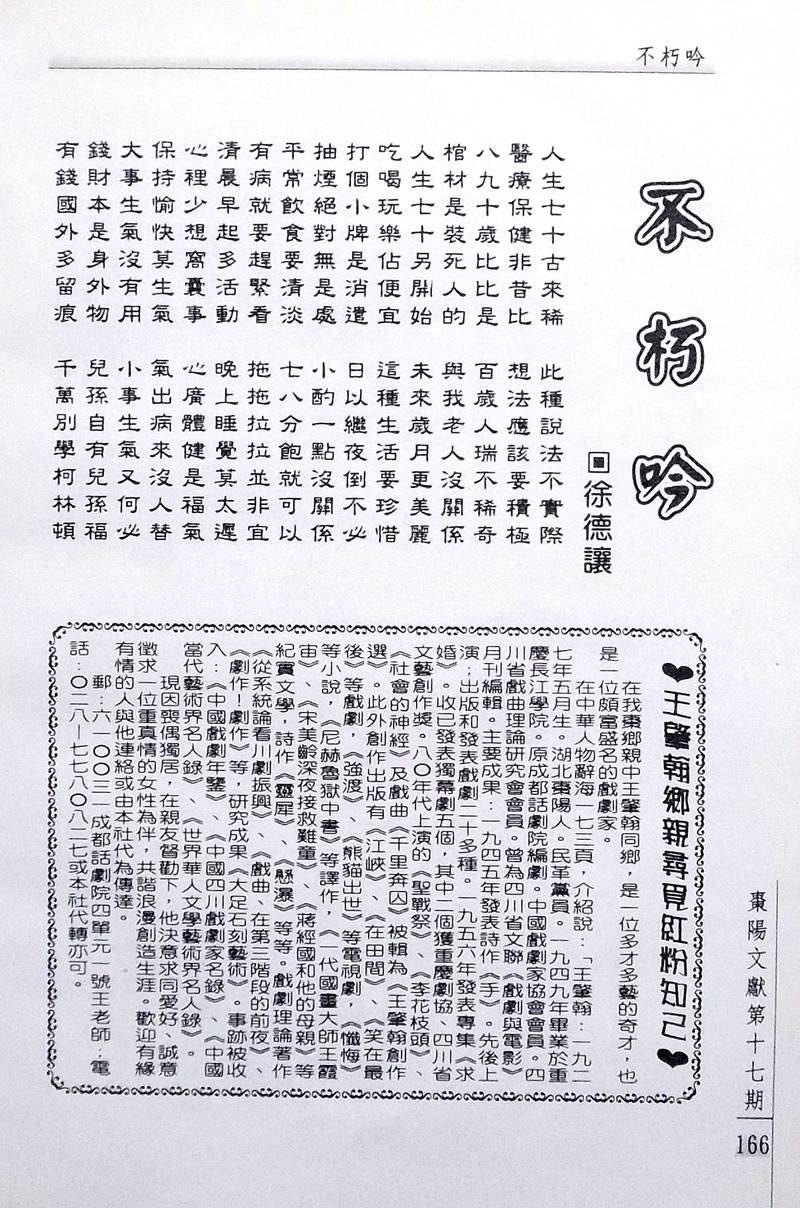 不朽吟
不朽吟
徐德讓
人生七十古來稀
此種說法不實際
醫療保健非昔比
想法應該要積極
八九十歲比比是
百歲人瑞不稀奇
棺材是裝死人的
與我老人沒關係
人生七十另開始
未來歲月更美麗
吃喝玩樂佔便宜
這種生活要珍惜
打個小牌是消遣
日以繼夜倒不必
抽煙絕對無是處
小酌一點沒關係
平常飲食要清淡
七八分飽就可以
有病就要趕緊看
拖拖拉拉並非宜
清晨早起多活動
晚上睡覺莫太遲
心裡少想窩囊事
心廣體健是福氣
保持愉快莫生氣
氣出病來沒人替
大事生氣沒有用
小事生氣又何必
錢財本是身外物
兒孫自有兒孫福
有錢國外多留痕
千萬別學柯林頓
❤王肇翰鄉親尋覓紅粉知己❤
在我棗鄉親中王肇翰同鄉，是一位多才多藝的奇才，也
是一位頗富盛名的戲劇家。
在中華人物辭海一七三頁，介紹說：「王肇翰：一九二
七年五月生。湖北棗陽人。民革黨員。一九四九年畢業於重
慶長江學院。原成都話劇院編劇。中國戲劇家協會會員。四
川省戲曲理論研究會會員。曾為四川省文聯《戲劇與電影》
月刊編輯。主要成果：一九四五年發表詩作《手》。先後上
演；出版和發表戲劇二十多種。一九五六年發表專集《求
婚》。收已發表獨幕劇五個，其中二個獲重慶劇協、四川省
文藝創作獎。八〇年代上演的《聖戰祭》、《李花枝頭》、
《社會的神經》及戲曲《千里奔囚》被輯為《王肇翰創作
選》。此外創作出版有《江峽》、《在田間》、《笑在最
後》等戲劇，《強渡》、《熊貓出世》等電視劇，《懺悔》
等小說，《尼赫魯獄中書》等譯作，《一代國畫大師王霞
宙》、《宋美齡深夜接救難童》、《蔣經國和他的母親》等
紀實文學，詩作《靈犀》、《懸瀑》等等。戲劇理論著作
《從系統論看川劇振興》、《戲曲、在第三階段的前夜》、
《劇作！劇作》等，研究成果《大足石刻藝術》。事跡被收
入：《中國戲劇年鑒》、《中國四川戲劇家名錄》、《中國
當代藝術界名人錄》、《世界華人文學藝術界名人錄》。
現因喪偶獨居，在親友督勸下，他決意求同愛好、誠意
徵求一位重真情的女性為伴，共諧浪漫創造生涯。歡迎有緣
有情的人與他連絡或由本社代為傳達。
郵：六一〇〇三一成都話劇院四單元一號王老師；電
話：〇二八—七七八〇八二七或本社代轉亦可。
棗陽文獻第十七期
166